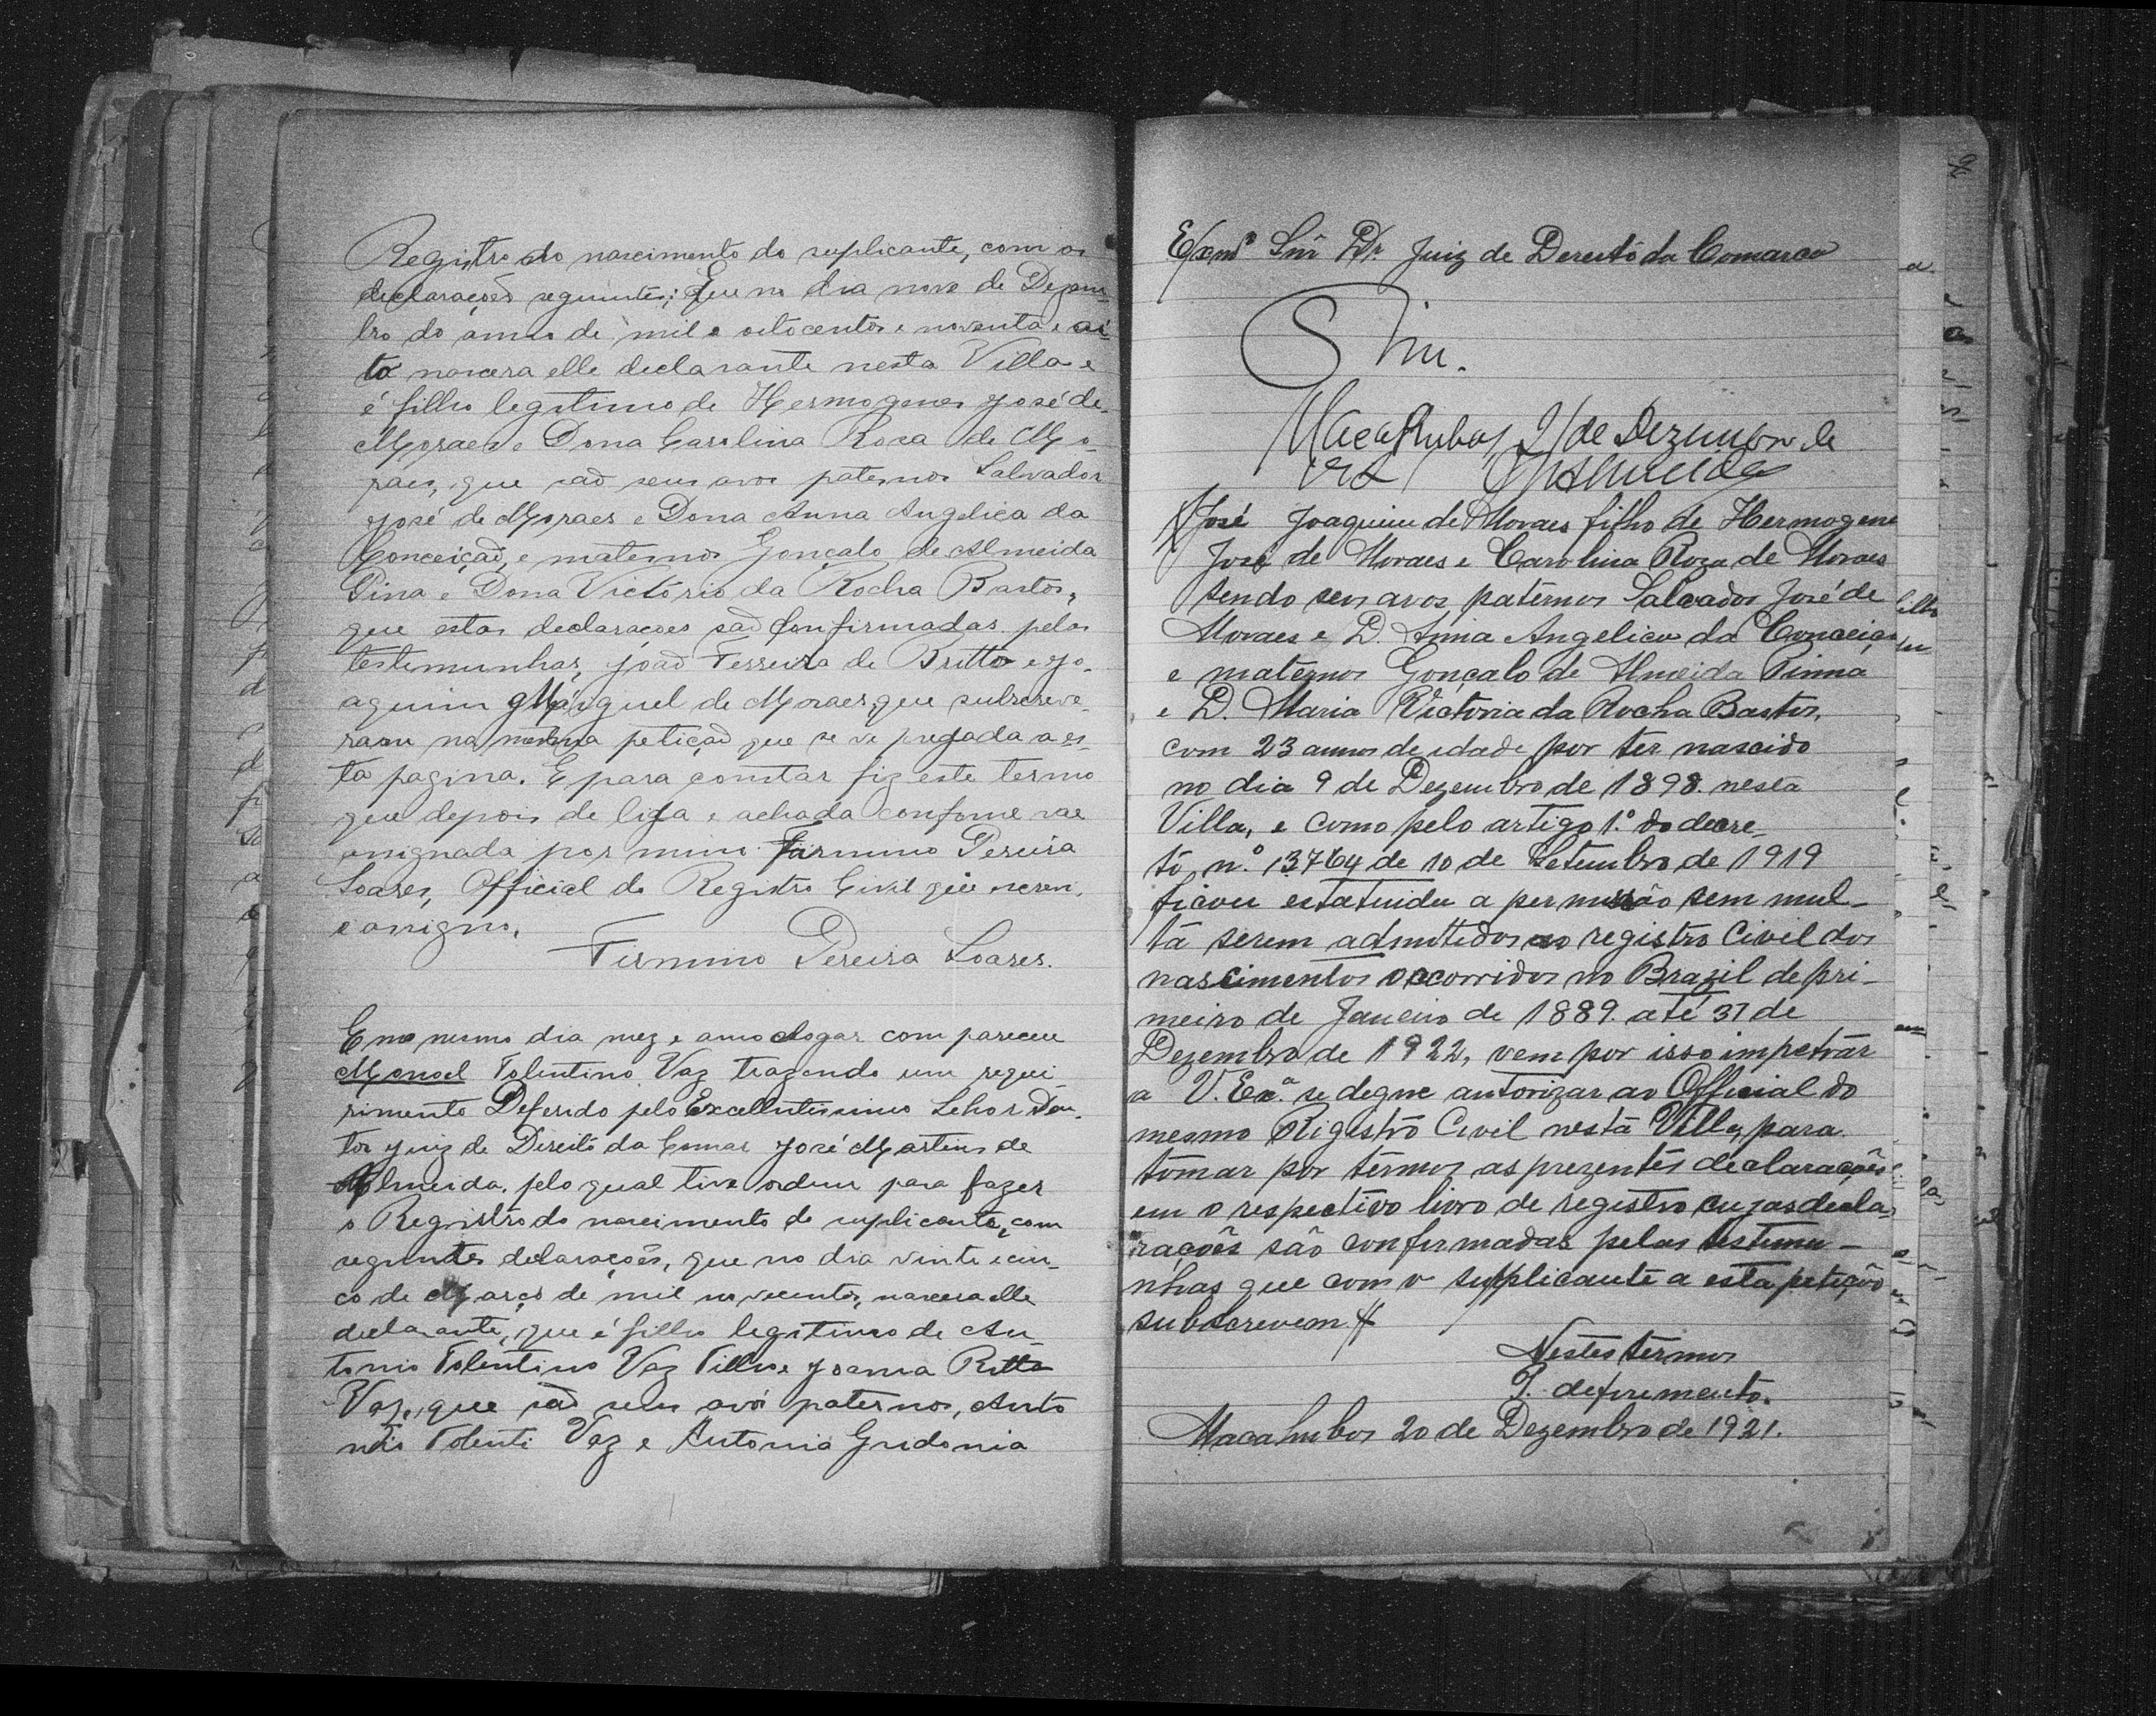 Registro do nascimento do suplicante, com as
declarações seguintes; Que no dia nove de Dezem-
bro do anno de mil e oitocentos e noventa e oi-
to nascera elle declarante nesta Villa e
é filho legitimo de Hermogenes José de
Moraes e Dona Carolina Roza de Mo-
raes, que são seus avos paternos Salvador
José de Moraes e Dona Anna Angelica da
Conceição, e maternos Gonçalo de Almeida
Pina e Dona Victória da Rocha Bastos,
que estas declarações são confirmadas pelas
testemunhas, João Ferreira de Britto e Jo-
aquim de Moraes, que subscreve-
ram na mesma petição que se ve pregada a es-
ta pagina. E para constar fiz este termo
que depois de lida e achada conforme vae
assignada por mim Firmino Pereira
Soares, Official do Registro Civil que escrevi
e assigno.
Firmino Pereira Soares.
E no mesmo dia mez e anno e logar compareceu
Manoel Tolentino Vaz trazendo um requi-
rimento Deferido pelo Excellentissimo Sehor Dou-
tor Juiz de Direito da Comar José Martins de
Almeida, pelo qual tive ordem para fazer
o Registro do nascimento do suplicante, com
seguintes declarações, que no dia vinte e cin-
co de Março de mil novecentos, nascera elle
declarante, que é filho legitimo de An-
tonio Tolentino Vaz Filho e Joanna Ritta
Vaz, que são seus avós paternos, Anto
nio Tolenti Vaz e Antonia
Exmº Snr Dr. Juiz de Dereito da Comarca
Sim.
Macahubas, 21 de Dezembro de
1921 Almeida
José Joaquim de Moraes filho de Hermogene
José de Moraes e Carolina Roza de Moraes
sendo seus avos paternos Salvador José de
Moraes e D. Anna Angelica da Conceição
e maternos Gonçalo de Almeida Pinna
e D. Maria Victoria da Rocha Bastos,
com 23 annos de idade por ter nascido
no dia 9 de Dezembro de 1898. nesta
Villa, e como pelo artigo 1.º do decre-
to n.º 13764 de 10 de Setembro de 1919
ficou estatuidu a permissão sem mul-
ta serem admittidos ao registro Civil dos
nascimentos occorridos no Brazil de pri-
meiro de Janeiro de 1889. até 31 de
Dezembro de 1922, vem por isso impetrar
a V. Exª. se degne autorizar ao Official do
mesmo Rigistro Civil nesta Villa, para
tomar por termos as prezentes declarações
em o respectivo livro de registro cujas decla-
rações são confirmadas pelas testemu-
nhas que com o supplicante a esta petição
subscrevem.
Nestes termos
P. deferimento.
Macahubas 20 de Dezembro de 1921.